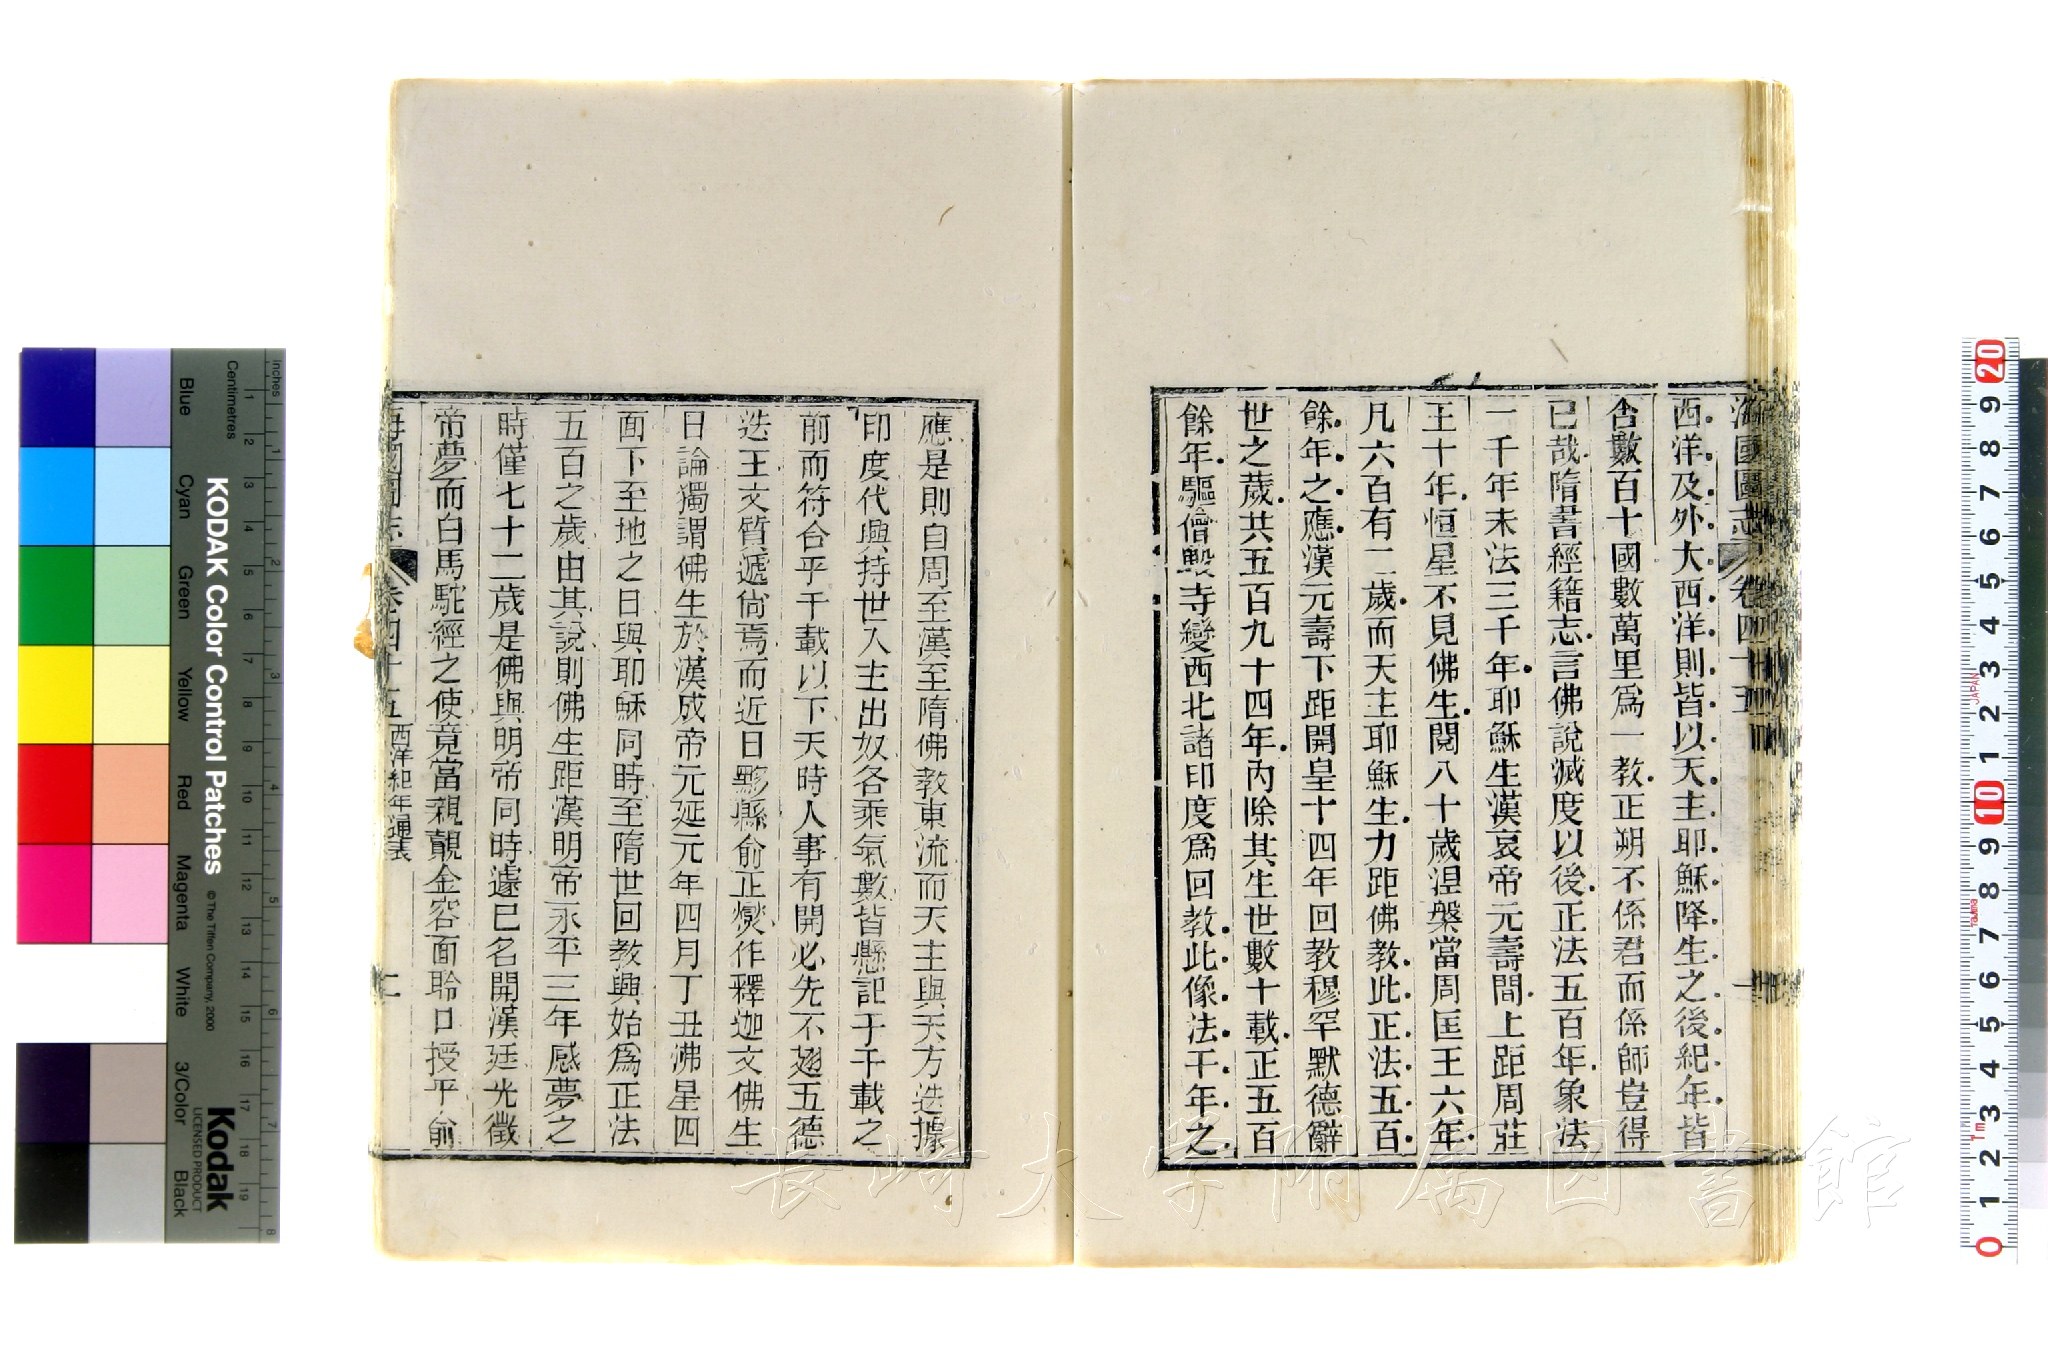 海國圖志 卷四十五 一
西洋及外大西洋則皆以天主耶穌降生之後紀年皆
含數百十國數萬里爲一教正朔不係君而係師豈得
已哉隋書經籍志言佛說滅度以後正法五百年象法
一千年末法三千年耶穌生漢哀帝元壽間上距周莊
王十年恒星不見佛生閱八十歲涅槃當周匡王六年
凡六百有二歲而天主耶穌生力距佛教此正法五百
餘年之應漢元壽下距開皇十四年回教穆罕默德辭
世之歲共五百九十四年內除其生世數十載正五百
餘年驅僧毀寺變西北諸印度爲回教此像法千年之
應是則自周至漢至隋佛教東流而天主與天方迭據
印度代興持世人主出奴各乘氣數皆懸記于千載之
前而符合乎千載以下天時人事有開必先不趐五德
迭王文質遞尙焉而近日黟縣俞正燮作釋迦文佛生
日論獨謂佛生於漢成帝元延元年四月丁丑沸星四
面下至地之日與耶穌同時至隋世回教興始爲正法
五百之歲由其說則佛生距漢明帝永平三年感夢之
時僅七十二歲是佛與明帝同時遽已名聞漢廷光徵
帝夢而白馬駝經之使竟當親覿金容面聆口授乎俞
海國圖志 卷四十五 西洋紀年通表 二
KODAK Color Control Patches
© The Tiffen Company, 2000
Kodak
LICENSED PRODUCT
Inches
Centimetres
Blue
Cyan
Green
Yellow
Red
Magenta
White
3/Color
Black
長崎大学附属図書館
JAPAN